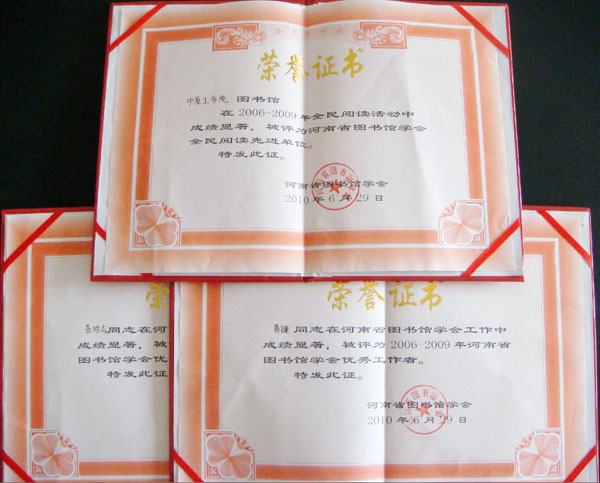 荣誉证书
中原工学院 图书馆
在2006-2009年全民阅读活动中
成绩显著，被评为河南省图书馆学会
全民阅读先进单位。
特发此证。
河南省图书馆学会
2010年6月29日
荣
同志在河
成绩显著，被
图书馆学会优
特发此证。
荣誉证书
同志在河南省图书馆学会工作中
成绩显著，被评为2006-2009年河南省
图书馆学会优秀工作者。
特发此证。
河南省图书馆学会
2010年6月29日